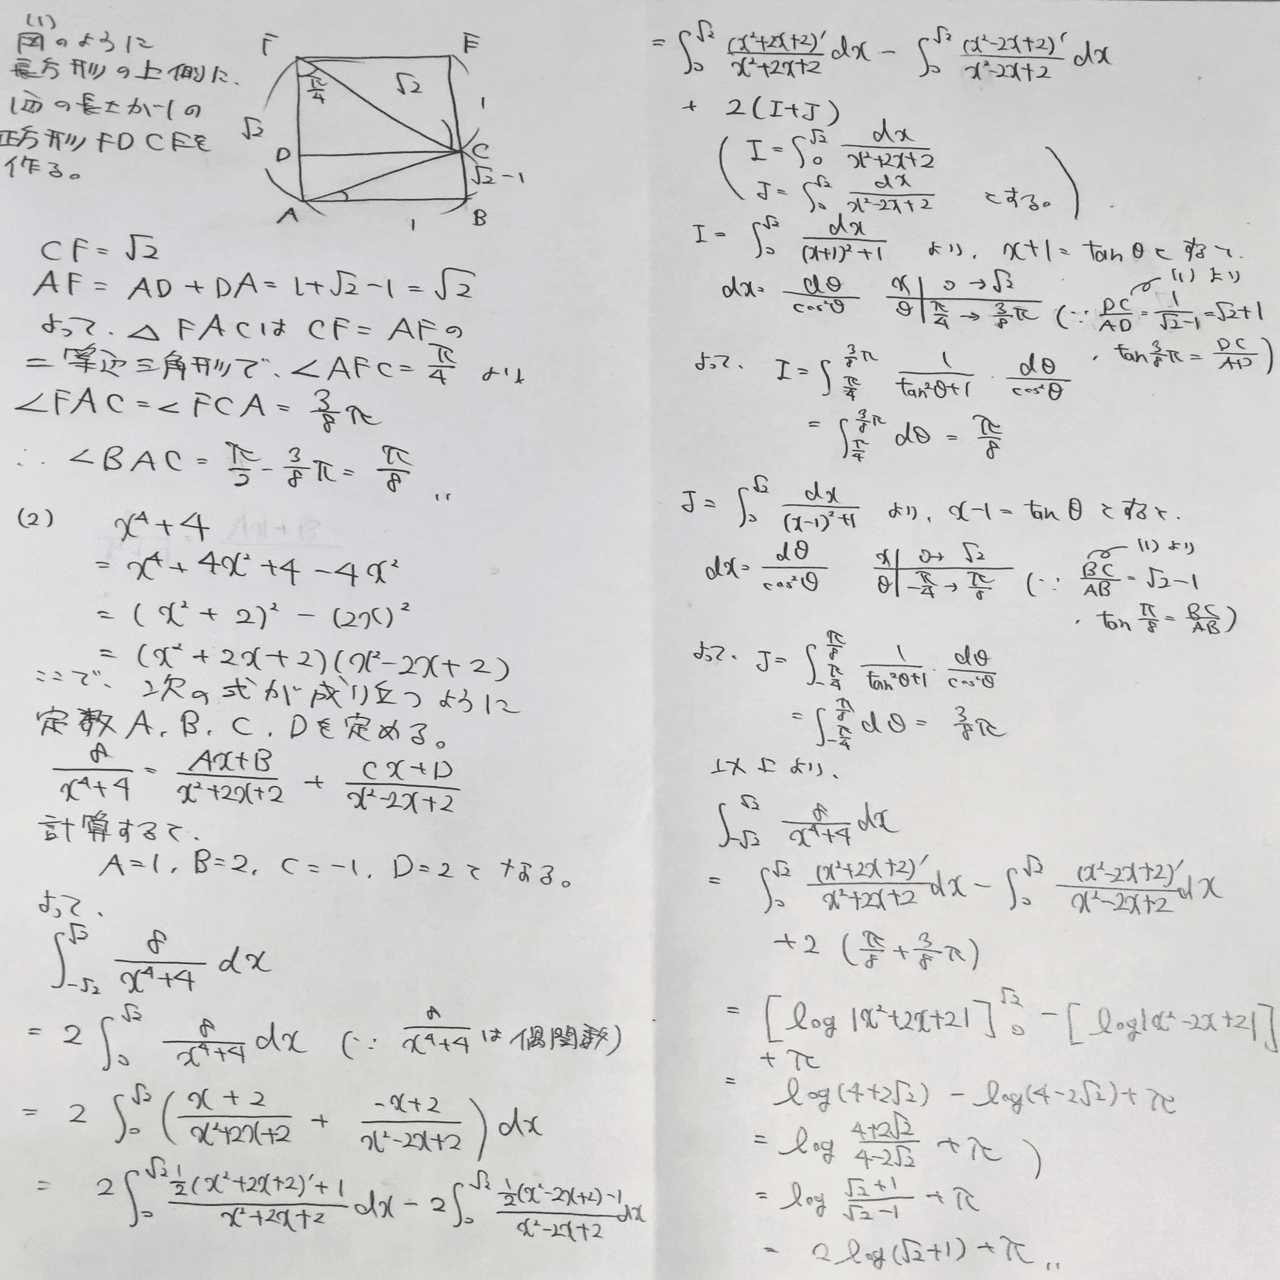 (1)
図のように
長方形の上側に、
1辺の長さが1の
正方形FDCEを
作る。
F E
π/4 √2 1
√2
D C
√2-1
A 1 B
CF = √2
AF = AD + DA = 1+√2-1 = √2
よって、△FACは CF = AFの
二等辺三角形で、∠AFC = π/4 より
∠FAC = ∠FCA = 3/8 π
∴ ∠BAC = π/2 - 3/8 π = π/8 〃
(2) x⁴+4
= x⁴+4x²+4-4x²
= (x²+2)² - (2x)²
= (x²+2x+2)(x²-2x+2)
ここで、次の式が成り立つように
定数A, B, C, Dを定める。
8/(x⁴+4) = (Ax+B)/(x²+2x+2) + (Cx+D)/(x²-2x+2)
計算すると、
A=1, B=2, C=-1, D=2となる。
よって、
∫_{-√2}^{√2} 8/(x⁴+4) dx
= 2∫_0^{√2} 8/(x⁴+4) dx (∵ 8/(x⁴+4) は偶関数)
= 2∫_0^{√2} ((x+2)/(x²+2x+2) + (-x+2)/(x²-2x+2)) dx
= 2∫_0^{√2} (½(x²+2x+2)'+1)/(x²+2x+2) dx - 2∫_0^{√2} (½(x²-2x+2)-1)/(x²-2x+2) dx
= ∫_0^{√2} (x²+2x+2)'/(x²+2x+2) dx - ∫_0^{√2} (x²-2x+2)'/(x²-2x+2) dx
+ 2(I+J)
(I = ∫_0^{√2} dx/(x²+2x+2)
J = ∫_0^{√2} dx/(x²-2x+2) とする。)
I = ∫_0^{√2} dx/((x+1)²+1) より、x+1 = tanθとすると、
(1)より
dx = dθ/cos²θ x | 0 → √2 θ | π/4 → 3/8 π (∵ DC/AD = 1/(√2-1) = √2+1
, tan 3/8 π = DC/AD)
よって、I = ∫_{π/4}^{3/8 π} 1/(tan²θ+1) · dθ/cos²θ
= ∫_{π/4}^{3/8 π} dθ = π/8
J = ∫_0^{√2} dx/((x-1)²+1) より、x-1 = tanθとすると、
(1)より
dx = dθ/cos²θ x | 0 → √2 θ | -π/4 → π/8 (∵ BC/AB = √2-1
, tan π/8 = BC/AB)
よって、J = ∫_{-π/4}^{π/8} 1/(tan²θ+1) · dθ/cos²θ
= ∫_{-π/4}^{π/8} dθ = 3/8 π
以上より、
∫_{-√2}^{√2} 8/(x⁴+4) dx
= ∫_0^{√2} (x²+2x+2)'/(x²+2x+2) dx - ∫_0^{√2} (x²-2x+2)'/(x²-2x+2) dx
+2 (π/8 + 3/8 π)
= [log|x²+2x+2|]_0^{√2} - [log|x²-2x+2|]
+ π
= log(4+2√2) - log(4-2√2) + π
= log (4+2√2)/(4-2√2) + π )
= log (√2+1)/(√2-1) + π
= 2log(√2+1) + π 〃